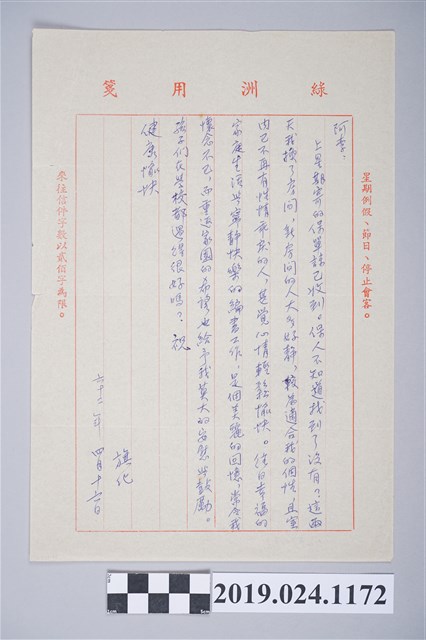 綠洲用箋
星期例假、節日、停止會客。
阿季：
上星期寄的保單諒已收到。保人不知道找到了沒有？這兩
天我換了房間，我房間的人大多好靜，較為適合我的個性，且室
內已不再有性情乖戾的人，甚覺心情輕鬆愉快。往日幸福的
家庭生活與寧靜快樂的編書工作，是個美麗的回憶，常令我
懷念不已，而重返家園的希望也給予我莫大的安慰與鼓勵。
孩子們在學校都過得很好嗎？祝
健康愉快
旗化
六十二年四月十六日
來往信件字數以貳佰字為限。
2019.024.1172